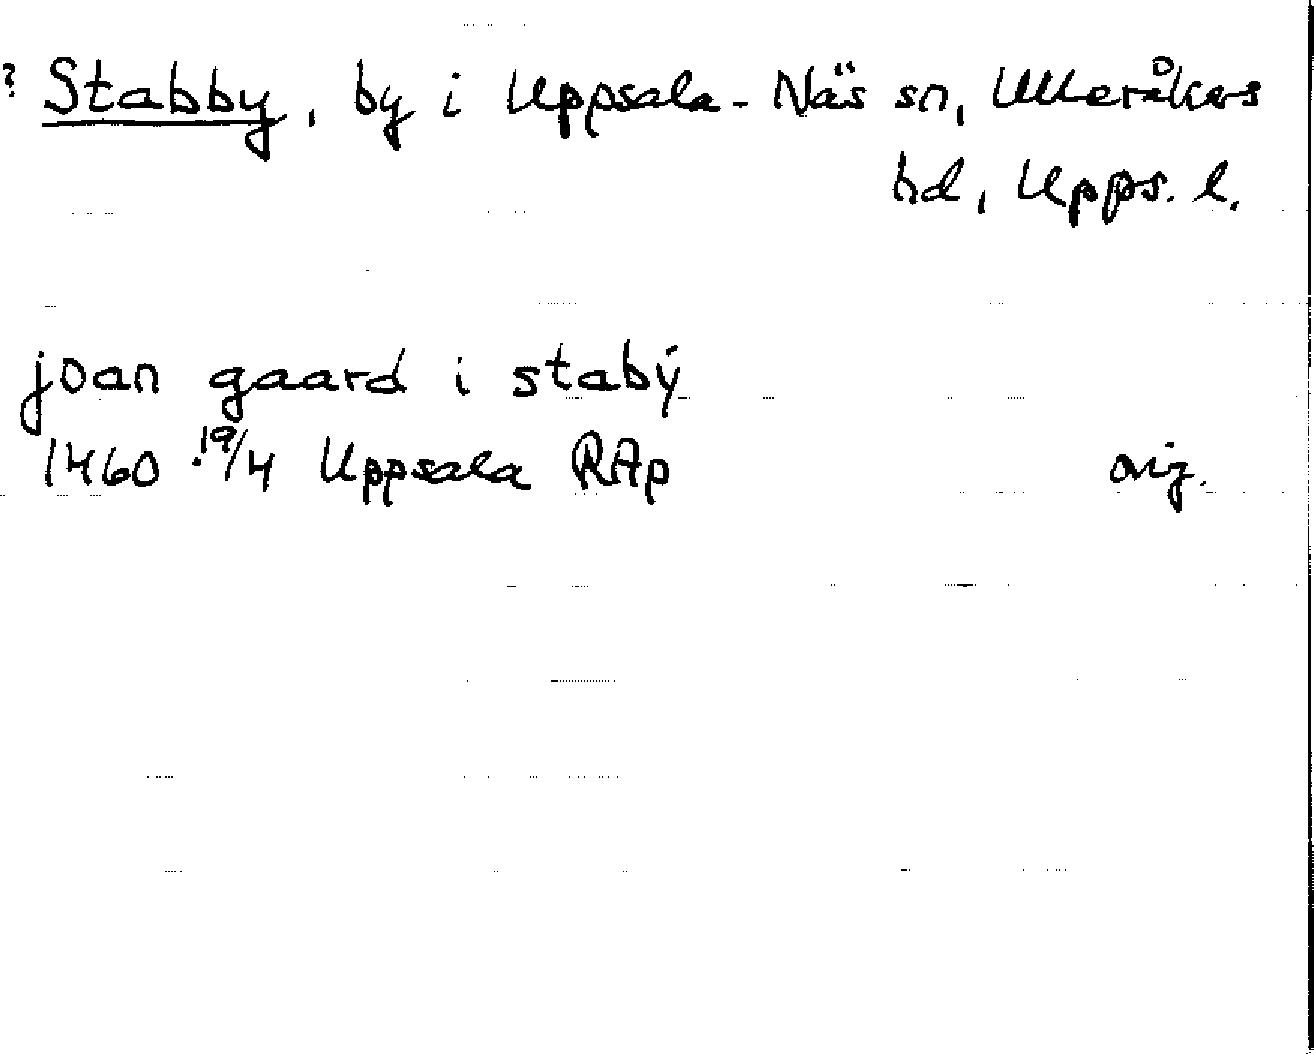 ? Stabby, by i Uppsala-Näs sn, Ulleråkers
hd, Upps. l.
joan gaard i stabÿ
1460 19/4 Uppsala RAp orig.